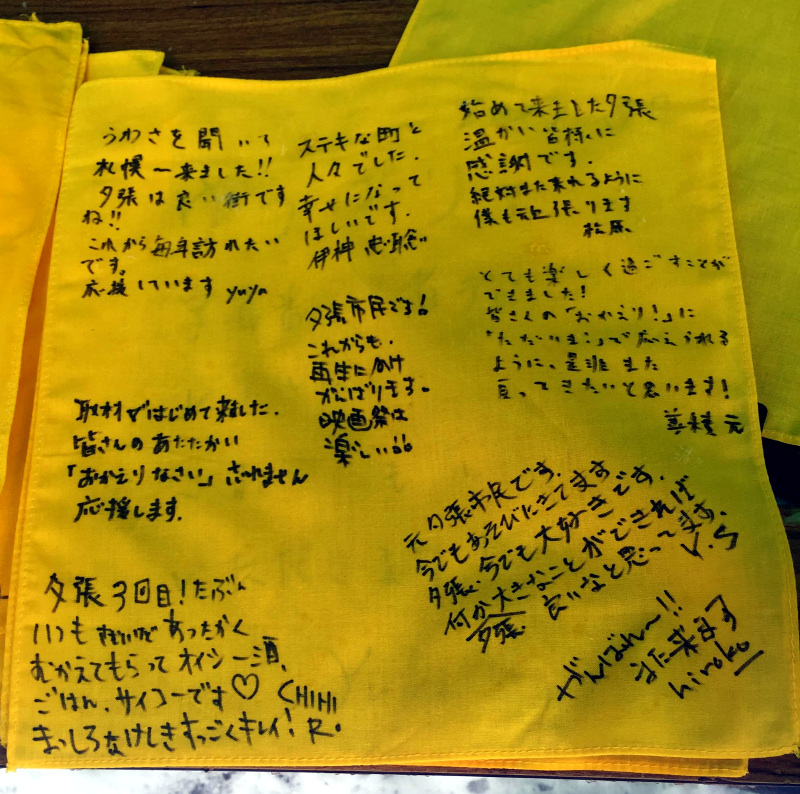 うわさを聞いて
札幌〜来ました!!
夕張は良い街です
ね!!
これから毎年訪れたい
です。
応援しています yuya
ステキな町と
人々でした.
幸せになって
ほしいです.
伊神 忠聡
始めて来ました夕張
温かい皆様に
感謝です.
絶対また来れるように
僕も頑張ります
松原
夕張市民です!
これからも.
再生にむけ
がんばります。
映画祭は
楽しい!!
とても楽しく過ごすことが
できました!
皆さんの「おかえり!」に
「ただいま!」で応えられる
ように、是非また
戻ってきたいと思います!
取材ではじめて来ました.
皆さんのあたたかい
「おかえりなさい」忘れません
応援します.
元夕張市民です.
今でもあそびにきてます.
夕張.今でも大好きです.
何か大きなことができれば
夕張. 良いなと思ってます.
Y.S
夕張3回目!たぶん
いつも あったかく
むかえてもらってオイシー酒.
ごはん.サイコーです♡ CHIHI
まっしろなけしきすっごくキレイ! R.
がんばれ〜!!
また来ます
hiroko